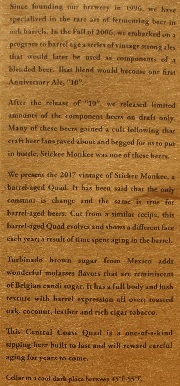 Since founding our brewery in 1996, we have
specialized in the rare art of fermenting beer in
oak barrels. In the Fall of 2006, we embarked on a
program to barrel age a series of vintage strong ales
that would later be used as components of a
blended beer. That blend would become our first
Anniversary Ale, "10".
After the release of "10", we released limited
amounts of the component beers on draft only.
Many of these beers gained a cult following that
craft beer fans raved about and begged for us to put
in bottle. Stickee Monkee was one of these beers.
We present the 2017 vintage of Stickee Monkee, a
barrel-aged Quad. It has been said that the only
constant is change and the same is true for
barrel-aged beers. Cut from a similar recipe, this
barrel-aged Quad evolves and shows a different face
each year; a result of time spent aging in the barrel.
Turbinado brown sugar from Mexico adds
wonderful molasses flavors that are reminiscent
of Belgian candi sugar. It has a full body and lush
texture with barrel expression off over toasted
oak, coconut, leather and rich cigar tobacco.
This Central Coast Quad is a one-of-a-kind
sipping beer built to last and will reward careful
aging for years to come.
Cellar in a cool dark place between 45°F-55°F.